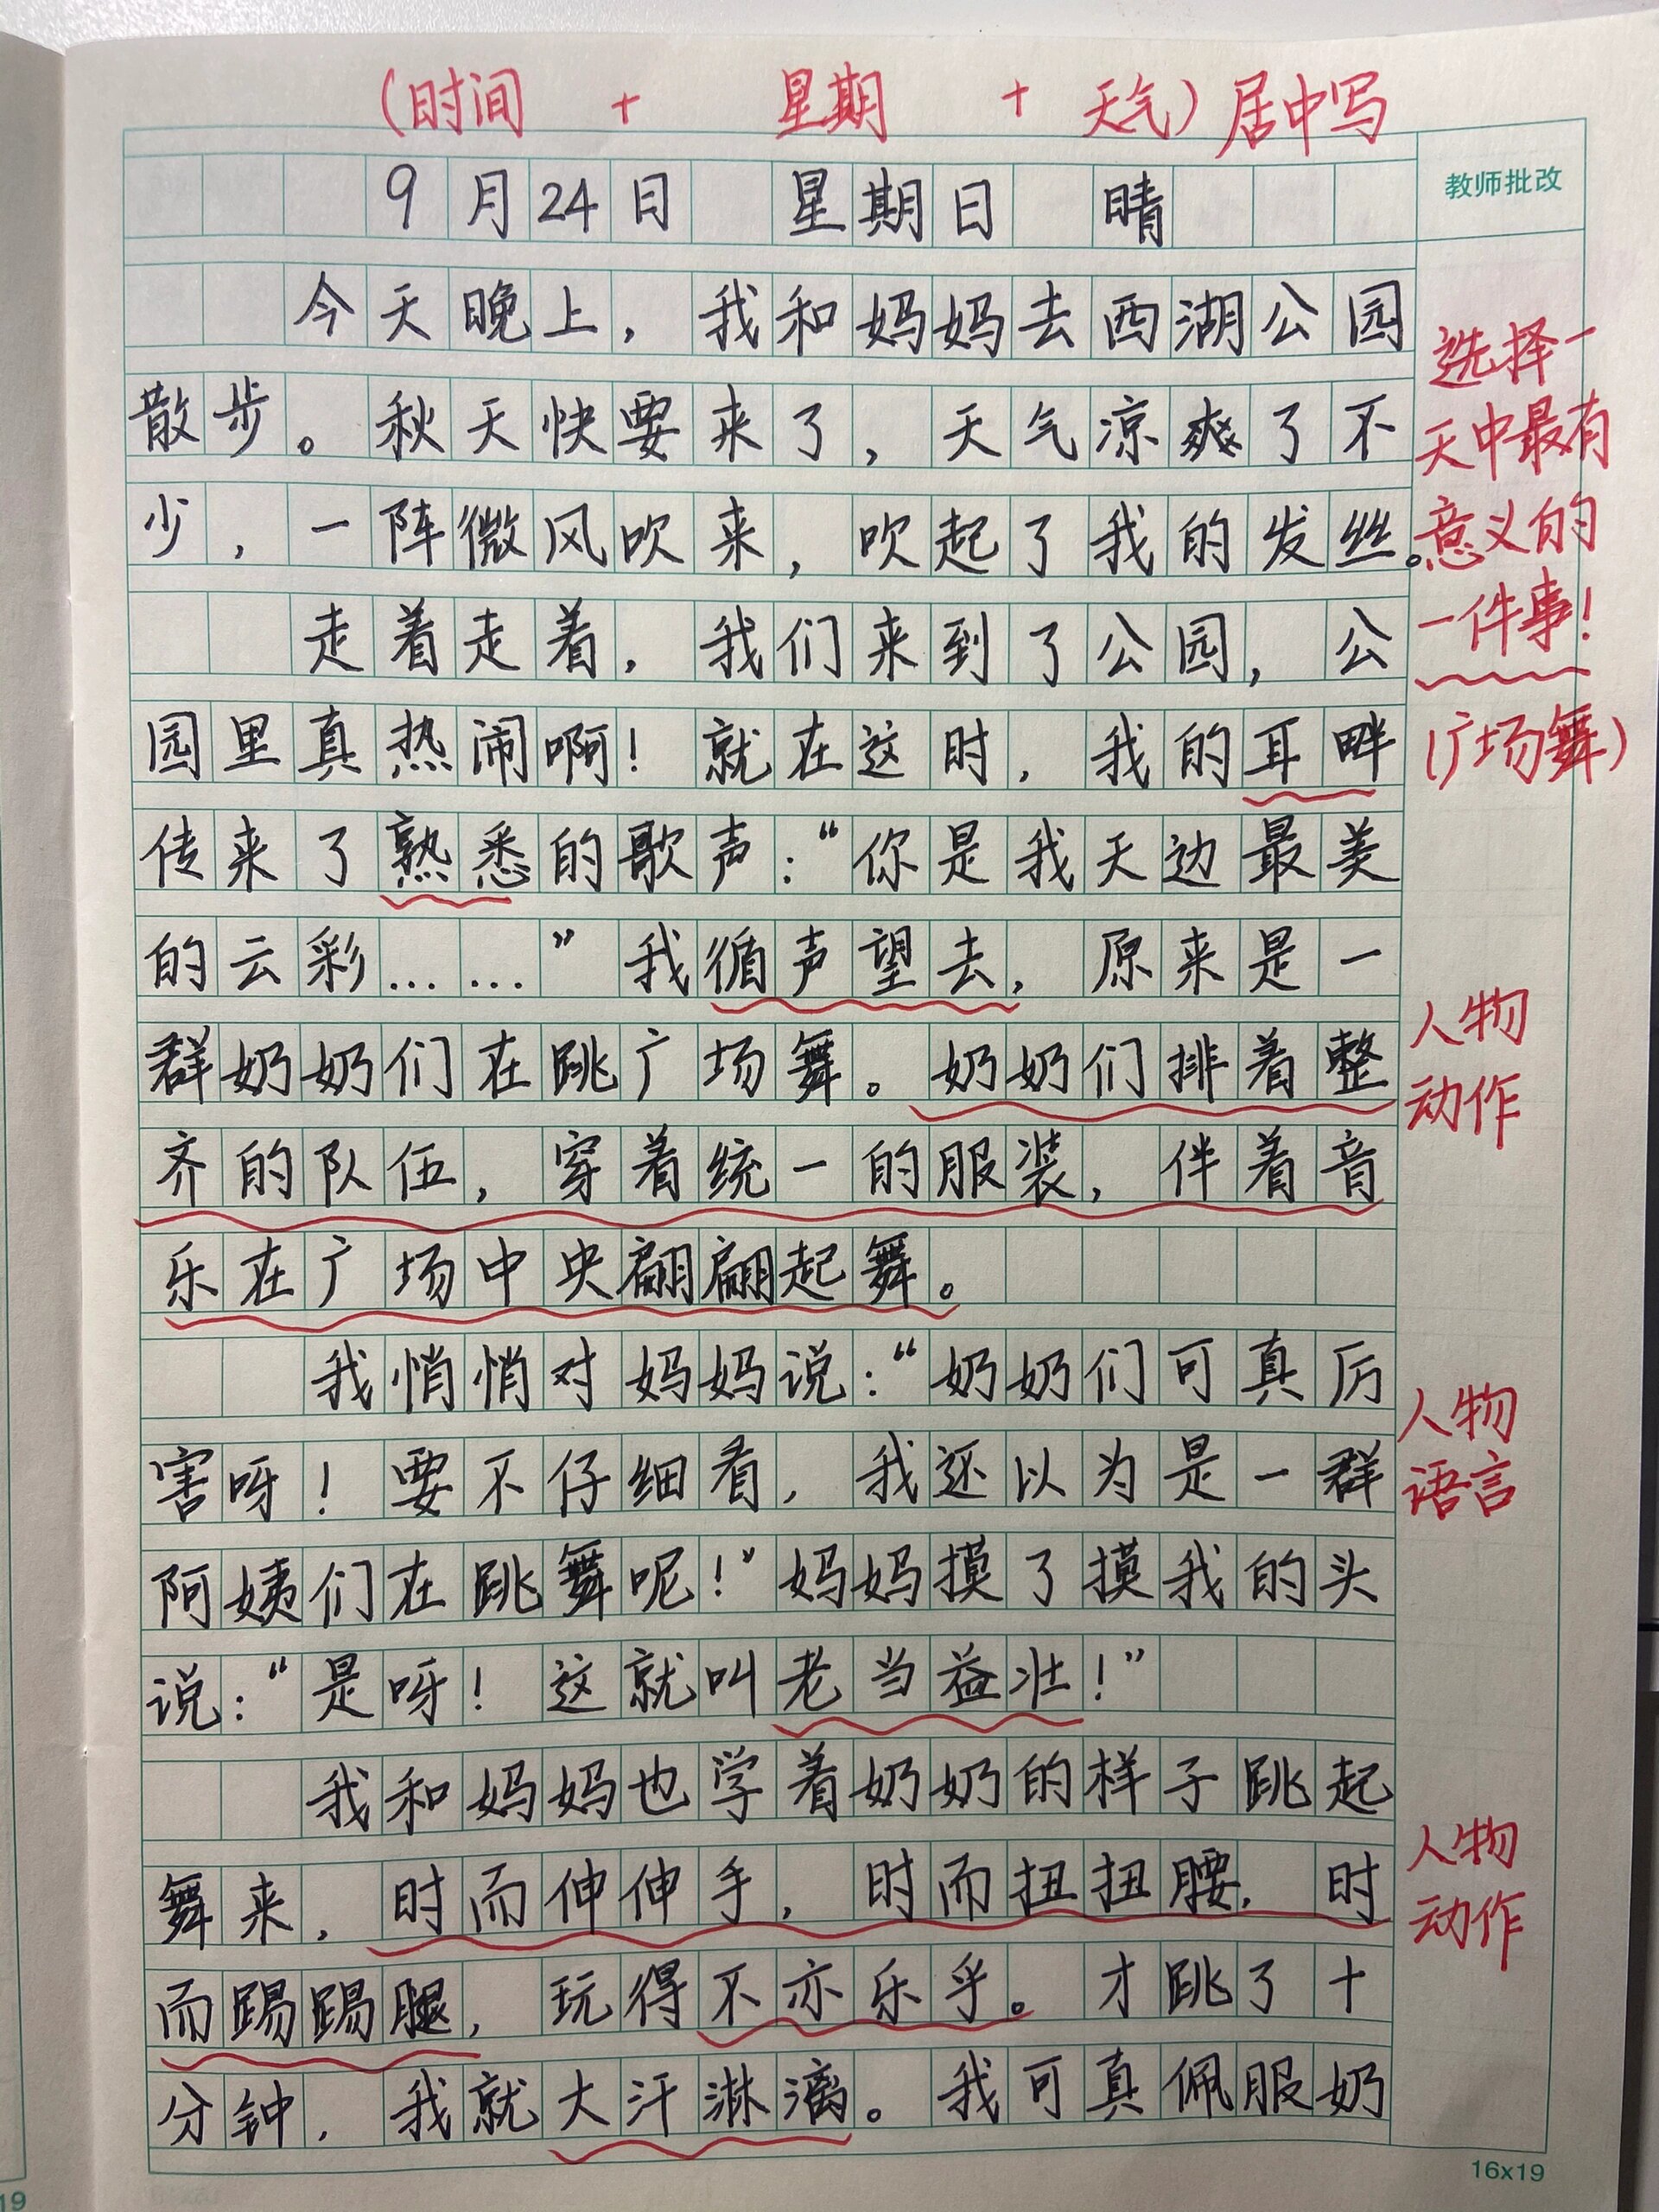 （时间 + 星期 + 天气）居中写
教师批改
9月24日 星期日 晴
今天晚上，我和妈妈去西湖公园
散步。秋天快要来了，天气凉爽了不
少，一阵微风吹来，吹起了我的发丝。
走着走着，我们来到了公园，公
园里真热闹啊！就在这时，我的耳畔
传来了熟悉的歌声：“你是我天边最美
的云彩……”我循声望去，原来是一
群奶奶们在跳广场舞。奶奶们排着整
齐的队伍，穿着统一的服装，伴着音
乐在广场中央翩翩起舞。
我悄悄对妈妈说：“奶奶们可真厉
害呀！要不仔细看，我还以为是一群
阿姨们在跳舞呢！”妈妈摸了摸我的头
说：“是呀！这就叫老当益壮！”
我和妈妈也学着奶奶的样子跳起
舞来，时而伸伸手，时而扭扭腰，时
而踢踢腿，玩得不亦乐乎。才跳了十
分钟，我就大汗淋漓。我可真佩服奶
选择一
天中最有
意义的
一件事！
（广场舞）
人物
动作
人物
语言
人物
动作
16x19
19